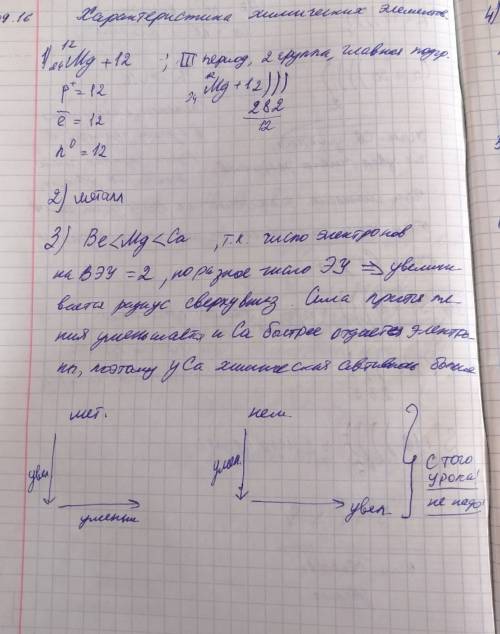 09.16 Характеристика химических элементов.
4)
1) 12 24 Mg +12 ; III период, 2 группа, главная подгр.
p⁺ = 12
12 24 Mg +12 )))
ē = 12
2 8 2
12
n⁰ = 12
2) металл
3) Be < Mg < Ca , т.к. число электронов
на ВЭУ = 2, но разное число ЭУ ⇒ увеличи-
вается радиус сверху вниз. Сила притяже-
ния уменьшается и Ca быстрее отдаёт электро-
ны, поэтому у Ca химическая активность больше
мет. нем.
увел. умен. С того
урока!
уменьш. увел. не надо!